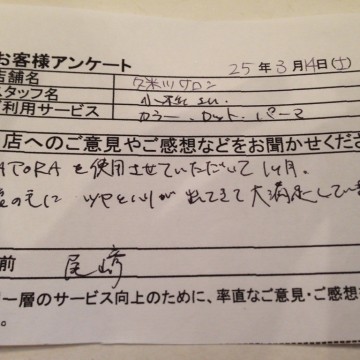 お客様アンケート
25年3月14日(土)
店舗名 久米川サロン
スタッフ名 小松
ご利用サービス カラー、カット、パーマ
店へのご意見やご感想などをお聞かせくださ
を使用させていただいて1ヶ月。
が出てきて大満足してい
前 尾崎
一層のサービス向上のために、率直なご意見・ご感想
。